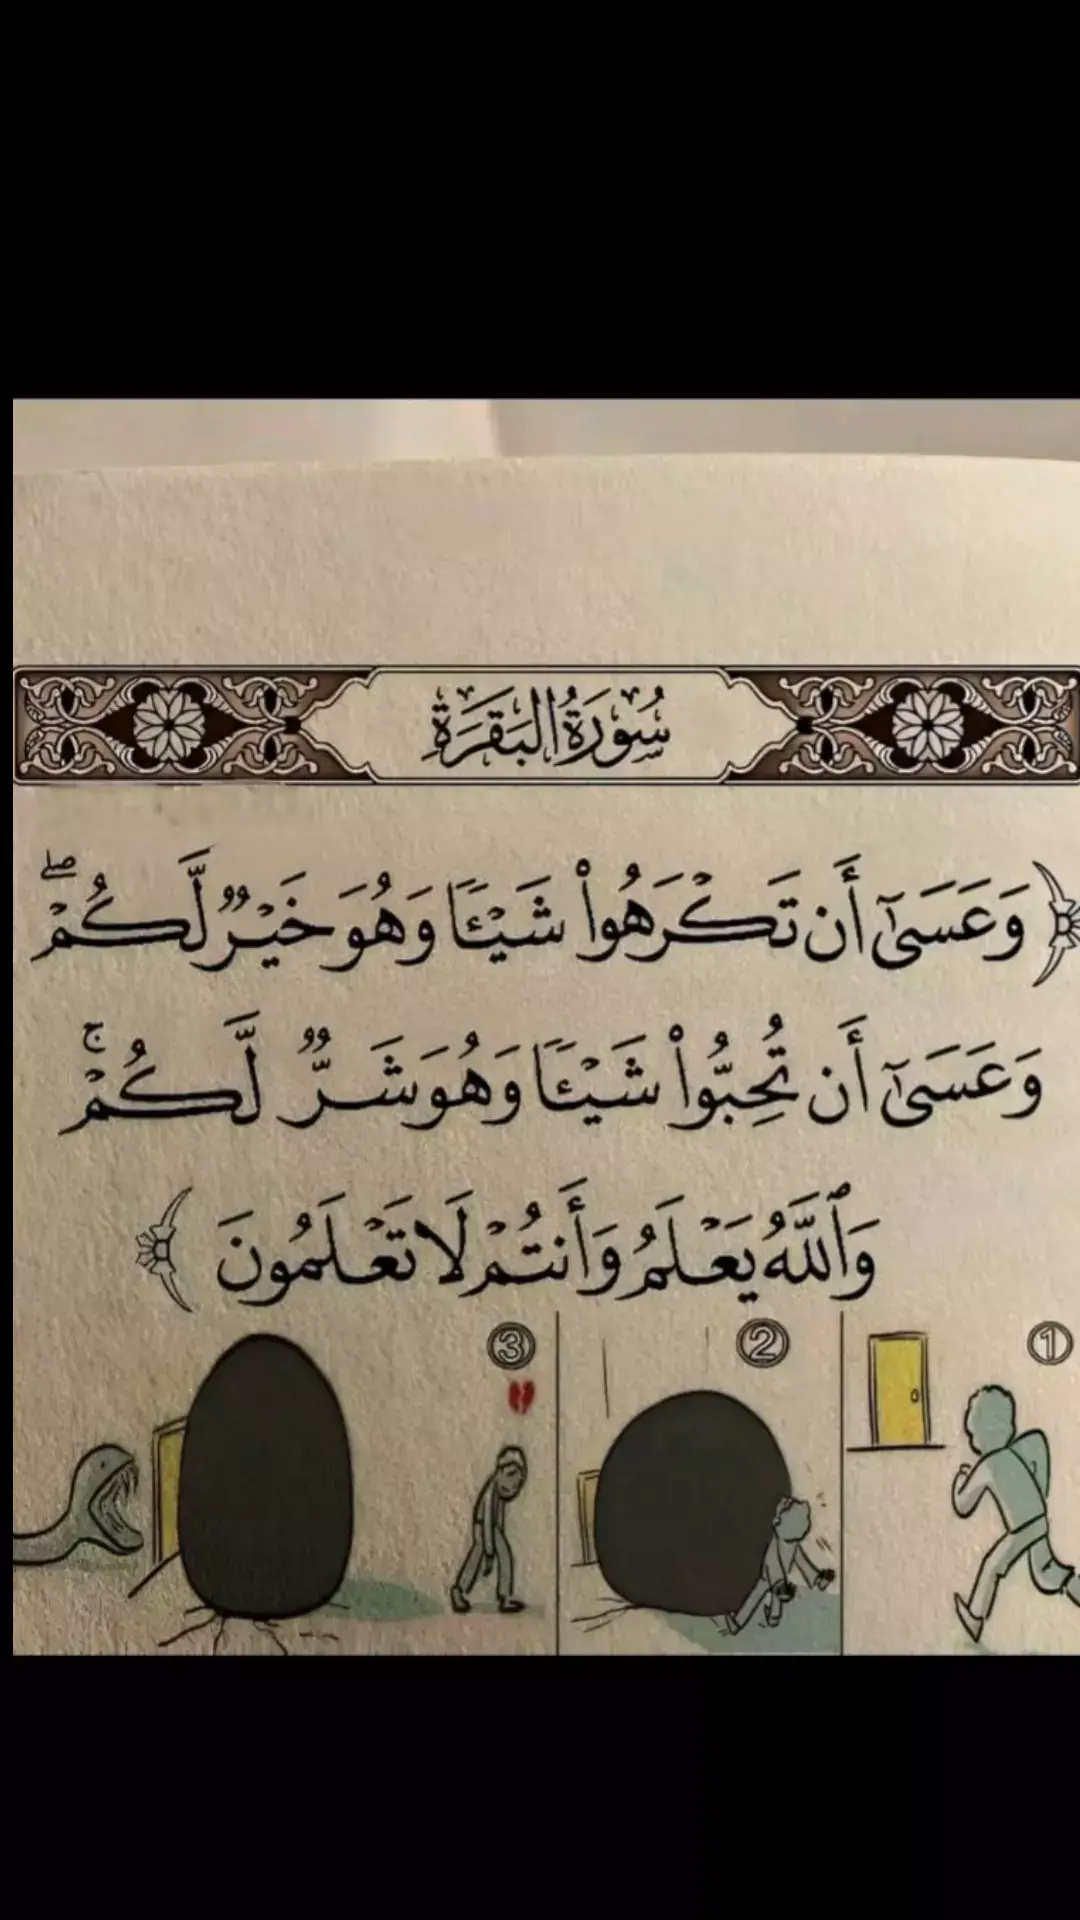 سُورَةُ البَقَرَةِ
﴿ وَعَسَىٰٓ أَن تَكْرَهُوا۟ شَيْـًٔا وَهُوَ خَيْرٌ لَّكُمْ ۖ
وَعَسَىٰٓ أَن تُحِبُّوا۟ شَيْـًٔا وَهُوَ شَرٌّ لَّكُمْ ۚ
وَٱللَّهُ يَعْلَمُ وَأَنتُمْ لَا تَعْلَمُونَ ﴾
① ② ③